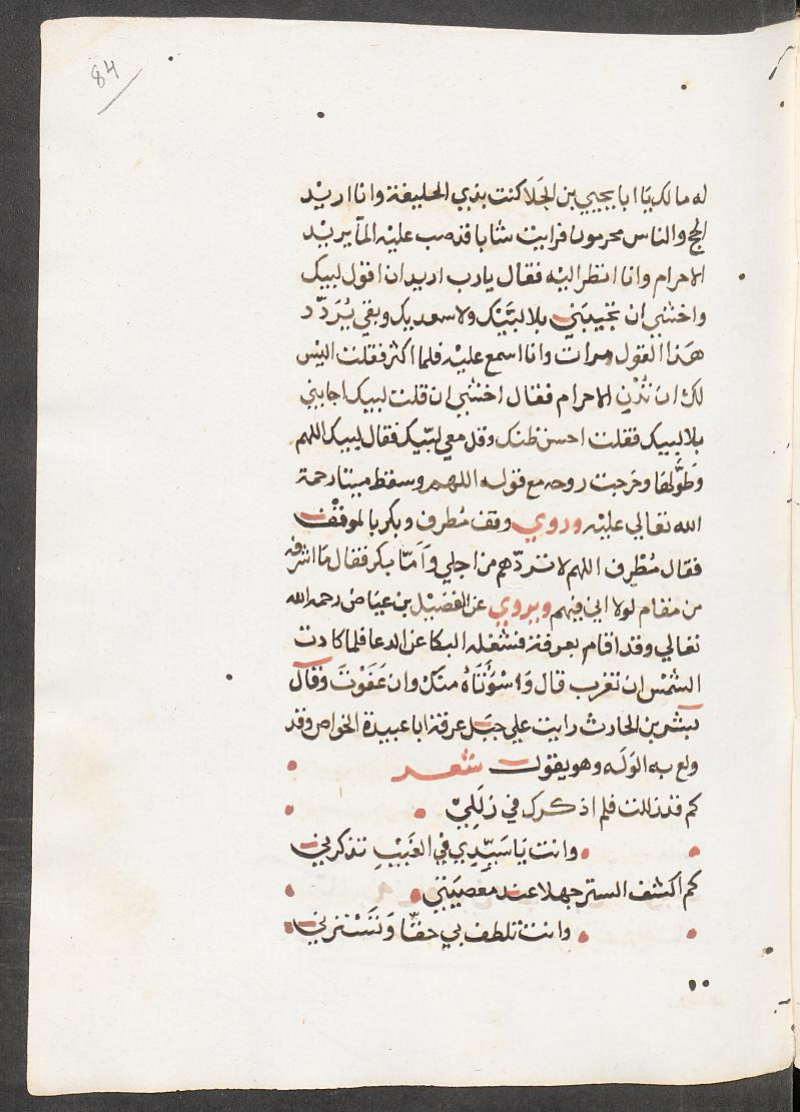 84
له مالك يا ابا يحيي بن الجَلا كنت بذي الحليفة وانا اريد
الحج والناس محرمون فرايت شابا قد صب عليه المآ يريد
الاحرام وانا انظر اليه فقال يا رب اريد ان اقول لبيك
واخشي ان تجيبني بلا لبَّيك ولا سعديك وبقي يُرَدّد
هذا القول مرات وانا اسمع عليه فلما اكثر فقلت اليس
لك ان من الاحرام فقال اخشي ان قلت لبيك اجابني
بلا لبيك فقلت احسن ظنك وقل معي لبّيك فقال لبيك اللهم
وَطَوَّلها وخرجت روحه مع قوله اللهم وسقط ميتا رحمة
الله تعالي عليه وروي وقف مُطرف وبكر بالموقف
فقال مُطرف اللهم لا تردّهم من اجلي وَاَمّا بكر فقال مَا اشرفه
من مقام لولا اني فيهم ويروي عن الفضيْل بن عياض رحمه الله
تعالي وقد اقام بعرفة فشغله البكا عن الدعا فلما كادت
الشمس ان تغرب قال وَاسْوَُأتَاهُ منكْ وان عَفَوْتَ وقال
بشر بن الحارث رايت علي جبَل عرفة ابا عبيدة الخواص وقد
ولع به الوَلَه وهو يقول شعر
كم قد زللت فلم اذكرك في زلَلِيْ
وانت يَا سَيّدِي في الغَيْبِ تذكرني
كم اكشف الستر جهلا عند معصيَتِي
وانت تلطف بي حقّا وَتَسْترني